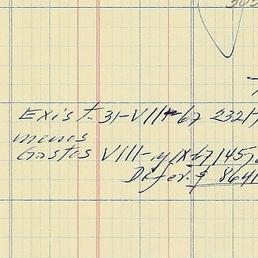 Exist. 31-VIII-67 23217
menos
Gastos VIII-y IX 67 1457
Difer. $ 8641